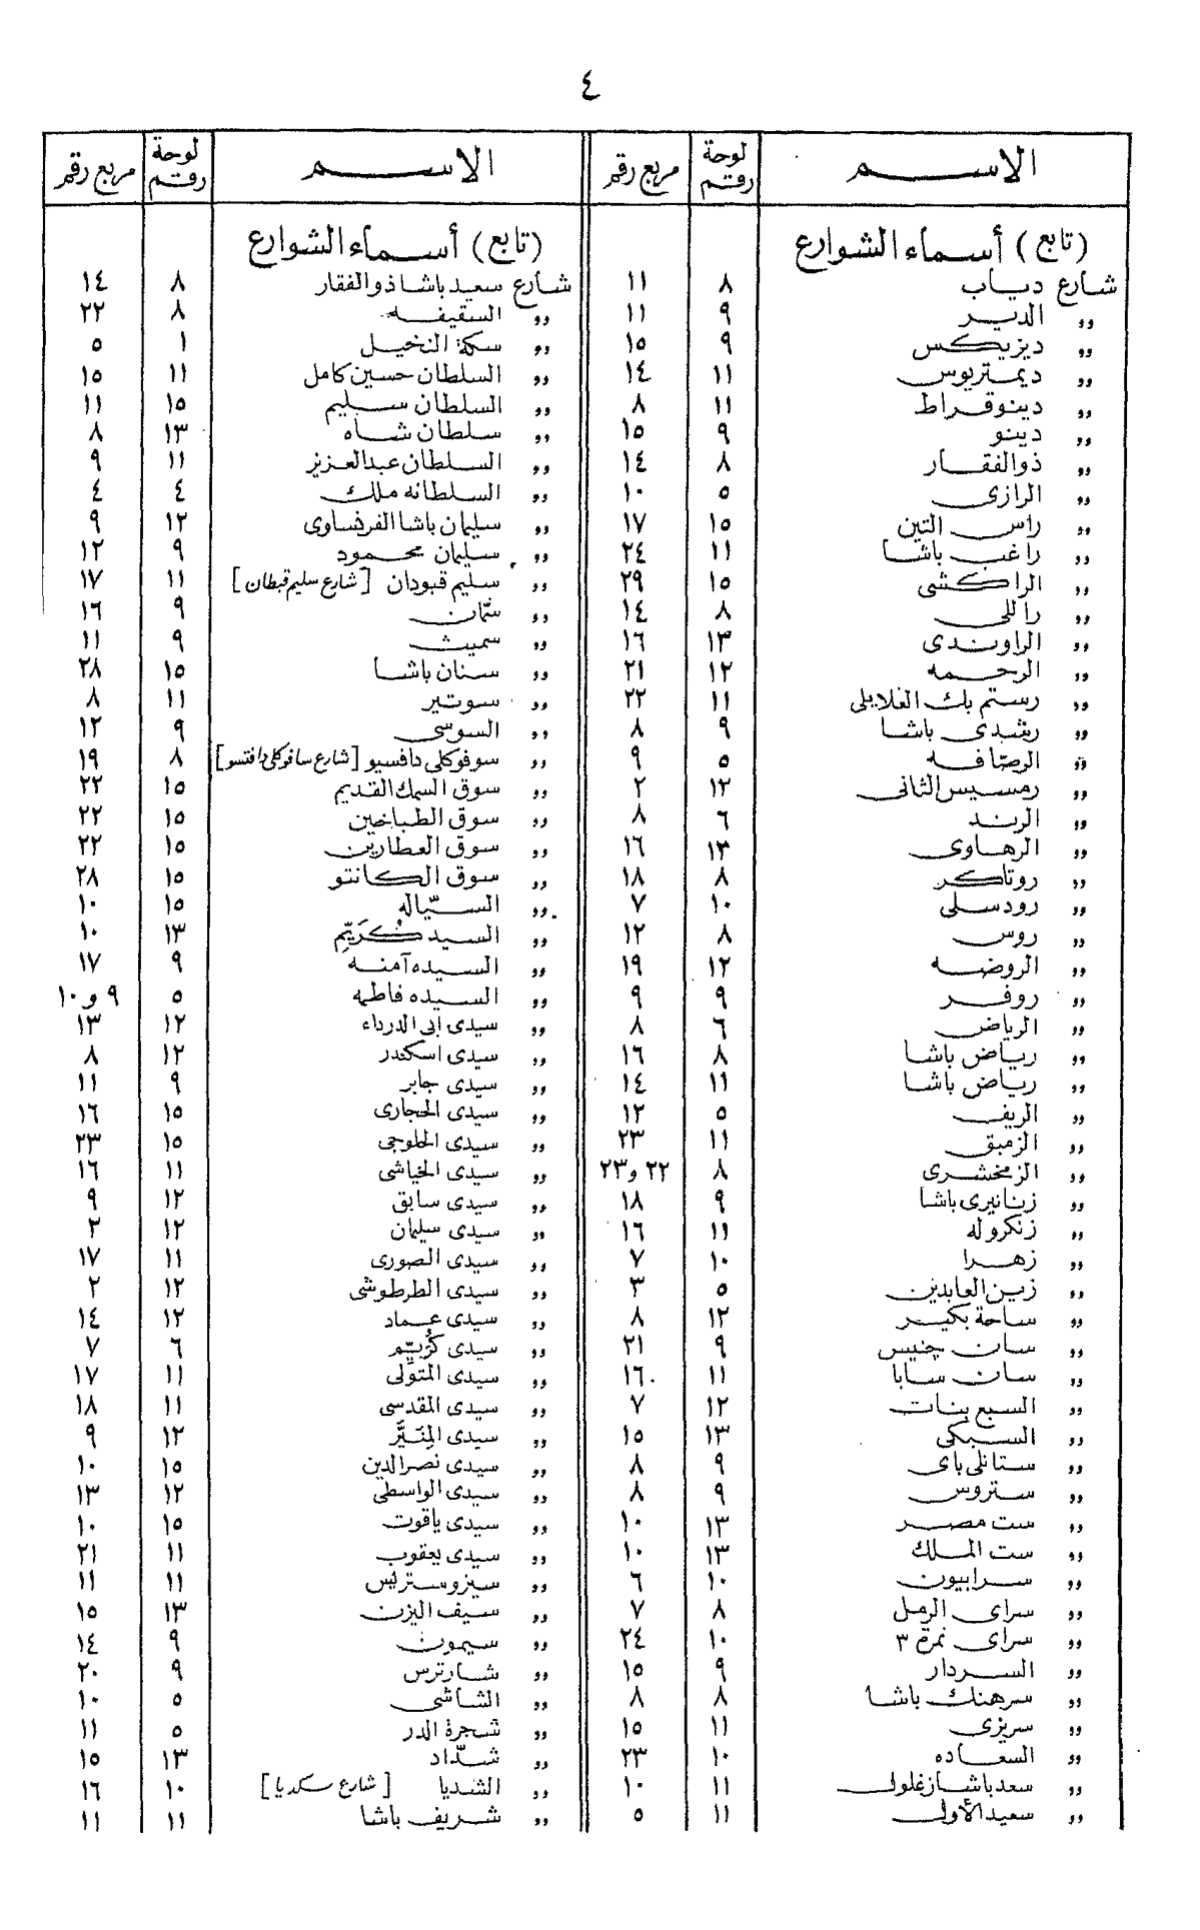 ٤
الاســـــم لوحة رقم مربع رقم
(تابع) أسماء الشوارع
شارع دياب ٨ ١١
„ الدير ٩ ١١
„ ديزيكس ٩ ١٥
„ ديمتريوس ١١ ١٤
„ دينوقراط ١١ ٨
„ دينو ٩ ١٥
„ ذوالفقار ٨ ١٤
„ الرازى ٥ ١٠
„ راس التين ١٥ ١٧
„ راغب باشا ١١ ٢٤
„ الراكشى ١٥ ٢٩
„ راللى ٨ ١٤
„ الراوندى ١٣ ١٦
„ الرحمه ١٢ ٢١
„ رستم بك الغلايلى ١١ ٢٢
„ رشدى باشا ٩ ٨
„ الرصافه ٥ ٩
„ رمسيس الثانى ١٢ ٢
„ الرند ٦ ٨
„ الرهاوى ١٣ ١٦
„ روتاكر ٨ ١٨
„ رودسلى ١٠ ٧
„ روس ٨ ١٢
„ الروضه ١٢ ١٩
„ روفر ٩ ٩
„ الرياض ٦ ٨
„ رياض باشا ٨ ١٦
„ رياض باشا ١١ ١٤
„ الريف ٥ ١٢
„ الزمبق ١١ ٢٣
„ الزمخشرى ٨ ٢٢ و٢٣
„ زنانيرى باشا ٩ ١٨
„ زنكروله ١١ ١٦
„ زهرا ١٠ ٧
„ زين العابدين ٥ ٣
„ ساحة بكير ١٢ ٨
„ سان چنيس ٩ ٢١
„ سان سابا ١١ ١٦
„ السبع بنات ١٢ ٧
„ السبكى ١٣ ١٥
„ ستانلى باى ٩ ٨
„ ستروس ٩ ٨
„ ست مصر ١٣ ١٠
„ ست الملك ١٣ ١٠
„ سرابيون ١٠ ٦
„ سراى الرمل ٨ ٧
„ سراى نمرة ٣ ١٠ ٢٤
„ السردار ٩ ١٥
„ سرهنك باشا ٨ ٨
„ سريزى ١١ ١٥
„ السعاده ١٠ ٢٣
„ سعد باشا زغلول ١١ ١٠
„ سعيد الأول ١١ ٥
الاســـــم لوحة رقم مربع رقم
(تابع) أسماء الشوارع
شارع سعيد باشا ذوالفقار ٨ ١٤
„ السقيفه ٨ ٢٢
„ سكة النخيل ١ ٥
„ السلطان حسين كامل ١١ ١٥
„ السلطان سليم ١٥ ١١
„ سلطان شاه ١٣ ٨
„ السلطان عبدالعزيز ١١ ٩
„ السلطانه ملك ٤ ٤
„ سليمان باشا الفرنساوى ١٢ ٩
„ سليمان محمود ٩ ١٢
„ سليم قبودان [شارع سليم قبطان] ١١ ١٧
„ سمّان ٩ ١٦
„ سميث ٩ ١١
„ سنان باشا ١٥ ٢٨
„ سوتير ١١ ٨
„ السوسى ٩ ١٢
„ سوفوكلى دافسيو [شارع سافوكلى دافتسو] ٨ ١٩
„ سوق السمك القديم ١٥ ٢٢
„ سوق الطباخين ١٥ ٢٢
„ سوق العطارين ١٥ ٢٢
„ سوق الكانتو ١٥ ٢٨
„ السيّاله ١٥ ١٠
„ السيد كُرَيّم ١٣ ١٠
„ السيده آمنه ٩ ١٧
„ السيده فاطمه ٥ ٩ و١٠
„ سيدى ابى الدرداء ١٢ ١٣
„ سيدى اسكندر ١٢ ٨
„ سيدى جابر ٩ ١١
„ سيدى الحجارى ١٥ ١٦
„ سيدى الحلوجى ١٥ ٢٣
„ سيدى الخياشى ١١ ١٦
„ سيدى سابق ١٢ ٩
„ سيدى سليمان ١٢ ٣
„ سيدى الصورى ١١ ١٧
„ سيدى الطرطوشى ١٢ ٢
„ سيدى عماد ١٢ ١٤
„ سيدى كُريّم ٦ ٧
„ سيدى المتولى ١١ ١٧
„ سيدى المقدسى ١١ ١٨
„ سيدى المنيَّر ١٢ ٩
„ سيدى نصرالدين ١٥ ١٠
„ سيدى الواسطى ١٢ ١٣
„ سيدى ياقوت ١٥ ١٠
„ سيدى يعقوب ١١ ٢١
„ سيزوستريس ١١ ١١
„ سيف اليزن ١٣ ١٥
„ سيمون ٩ ١٤
„ شارترس ٩ ٢٠
„ الشاشى ٥ ١٠
„ شجرة الدر ٥ ١١
„ شدّاد ١٣ ١٥
„ الشديا [شارع سكديا] ١٠ ١٦
„ شريف باشا ١١ ١١